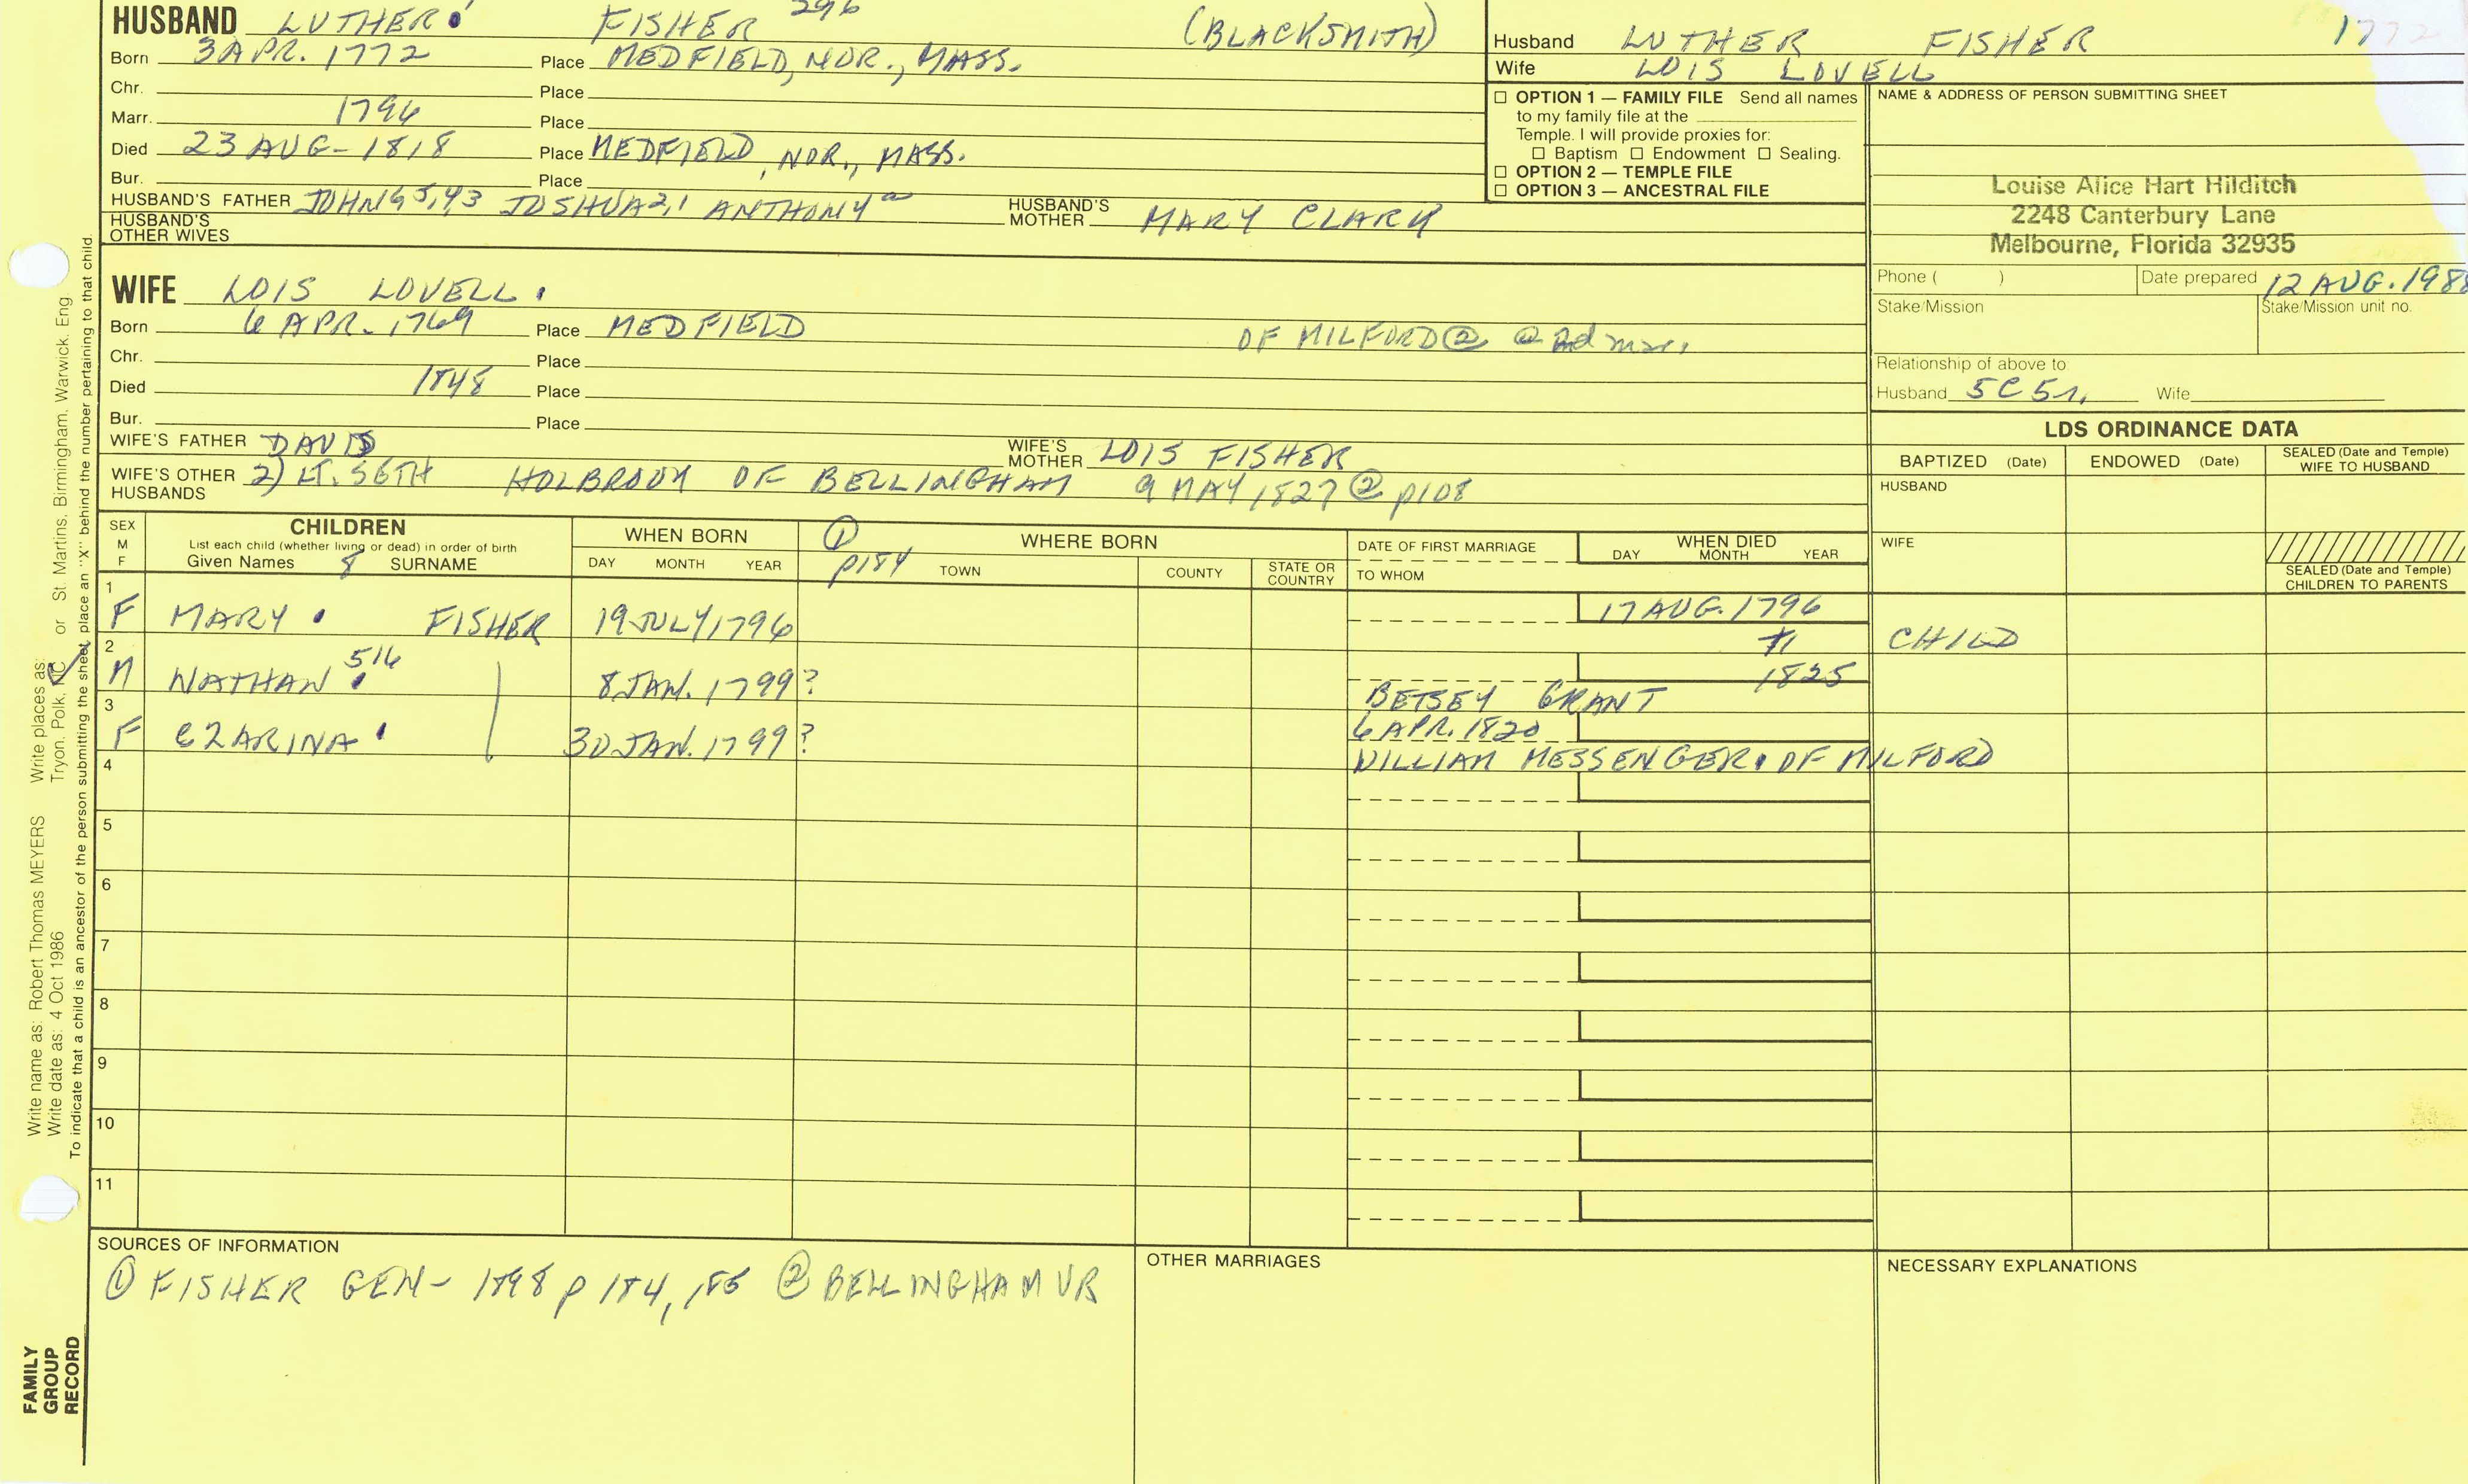 HUSBAND LUTHER FISHER 296 (BLACKSMITH)
Born 3 APR. 1772 Place MEDFIELD, NOR., MASS.
Chr. Place
Marr. 1796 Place
Died 23 AUG- 1818 Place MEDFIELD, NOR., MASS.
Bur. Place
HUSBAND'S FATHER JOHN 6 5,4,3 JOSHUA 2,1 ANTHONY a HUSBAND'S MOTHER MARY CLARK
HUSBAND'S OTHER WIVES
Husband LUTHER FISHER 1772
Wife LOIS LOVELL
☐ OPTION 1 — FAMILY FILE Send all names
to my family file at the
Temple. I will provide proxies for:
☐ Baptism ☐ Endowment ☐ Sealing.
☐ OPTION 2 — TEMPLE FILE
☐ OPTION 3 — ANCESTRAL FILE
NAME & ADDRESS OF PERSON SUBMITTING SHEET
Louise Alice Hart Hilditch
2248 Canterbury Lane
Melbourne, Florida 32935
Phone ( ) Date prepared 12 AUG. 1988
Stake/Mission Stake/Mission unit no.
Relationship of above to:
Husband 5C5r. Wife
WIFE LOIS LOVELL
Born 6 APR. 1769 Place MEDFIELD OF MILFORD @ ② @ 2d mar.
Chr. Place
Died 1848 Place
Bur. Place
WIFE'S FATHER DAVID WIFE'S MOTHER LOIS FISHER
WIFE'S OTHER HUSBANDS 2) LT. SETH HOLBROOK OF BELLINGHAM 9 MAY 1827 ② p108
LDS ORDINANCE DATA
BAPTIZED (Date) ENDOWED (Date) SEALED (Date and Temple) WIFE TO HUSBAND
HUSBAND
WIFE
SEALED (Date and Temple) CHILDREN TO PARENTS
SEX M F
CHILDREN
List each child (whether living or dead) in order of birth
Given Names 8 SURNAME
WHEN BORN
DAY MONTH YEAR
① p184
WHERE BORN
TOWN COUNTY STATE OR COUNTRY
DATE OF FIRST MARRIAGE
TO WHOM
WHEN DIED
DAY MONTH YEAR
1 F MARY FISHER 19 JULY 1796 17 AUG. 1796 CHILD
2 M NATHAN 516 8 JAN. 1799? 1825
BETSEY GRANT
3 F CZARINA 30 JAN. 1799? 6 APR. 1820
WILLIAM MESSENGER OF MILFORD
4
5
6
7
8
9
10
11
SOURCES OF INFORMATION
① FISHER GEN- 1898 p 184, 185 ② BELLINGHAM VR
OTHER MARRIAGES
NECESSARY EXPLANATIONS
Write name as: Robert Thomas MEYERS Write places as: Tryon, Polk, NC or St. Martins, Birmingham, Warwick, Eng.
Write date as: 4 Oct 1986
To indicate that a child is an ancestor of the person submitting the sheet, place an "X" behind the number pertaining to that child.
FAMILY
GROUP
RECORD